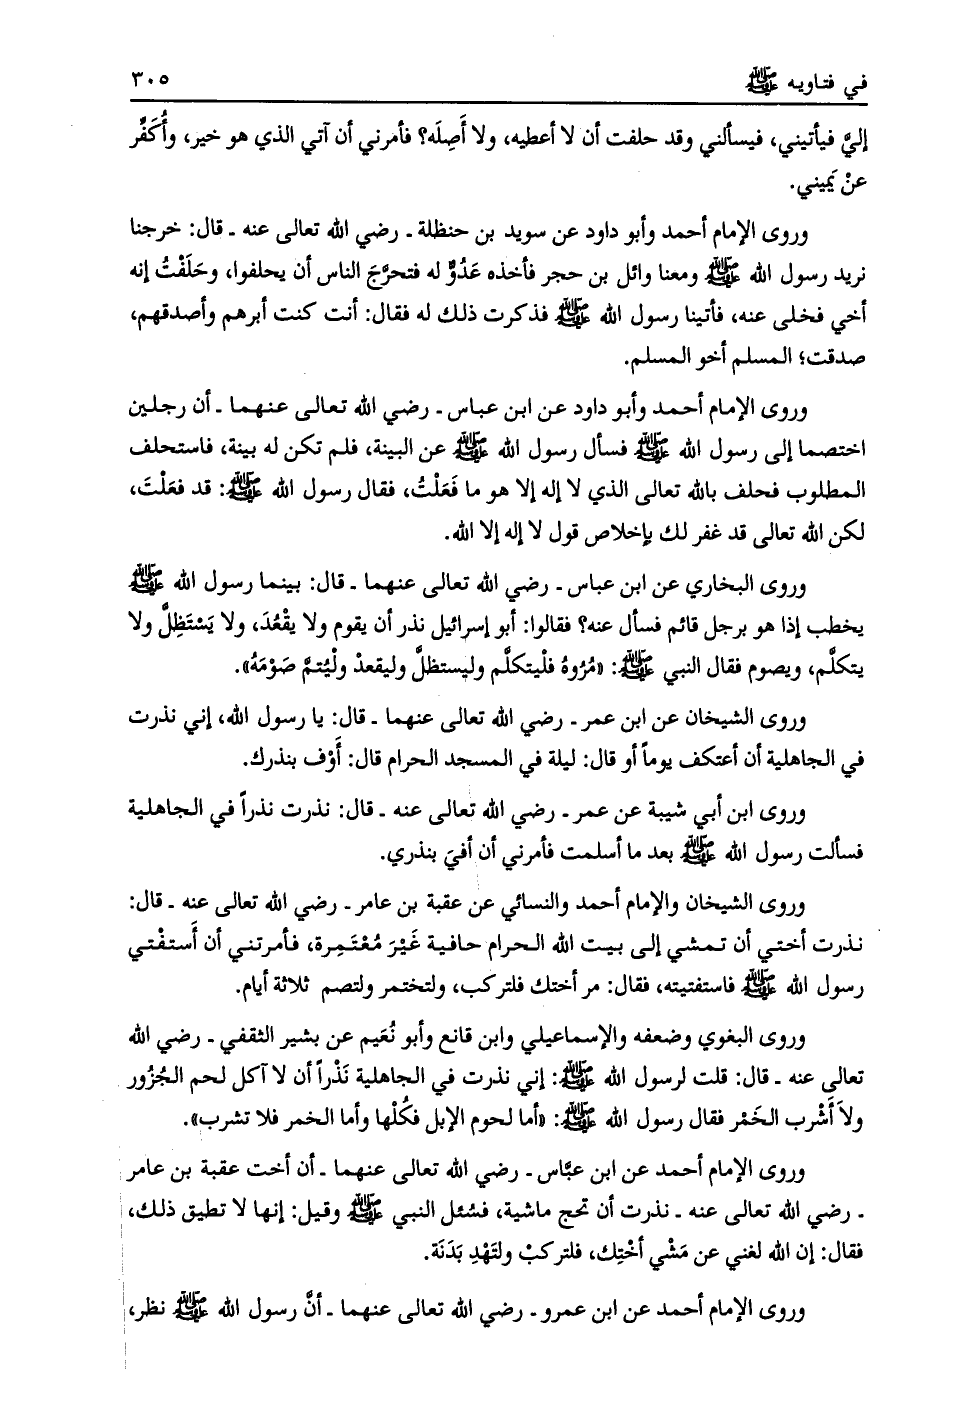 في فتاويه ﷺ ٣٠٥
إليَّ فيأتيني، فيسألني وقد حلفت أن لا أعطيه، ولا أَصِلَه؟ فأمرني أن آتي الذي هو خير، وأُكَفِّر
عنْ يَميني.
وروى الإمام أحمد وأبو داود عن سويد بن حنظلة ـ رضي الله تعالى عنه ـ قال: خرجنا
نريد رسول الله ﷺ ومعنا وائل بن حجر فأخذه عَدُوٌّ له فتحرَّجَ الناس أن يحلفوا، وحَلَفْتُ إنه
أخي فخلى عنه، فأتينا رسول الله ﷺ فذكرت ذلك له فقال: أنت كنت أبرهم وأصدقهم،
صدقت؛ المسلم أخو المسلم.
وروى الإمام أحمد وأبو داود عن ابن عباس ـ رضي الله تعالى عنهما ـ أن رجلين
اختصما إلى رسول الله ﷺ فسأل رسول الله ﷺ عن البينة، فلم تكن له بينة، فاستحلف
المطلوب فحلف بالله تعالى الذي لا إله إلا هو ما فَعَلْتُ، فقال رسول الله ﷺ: قد فعَلْتَ،
لكن الله تعالى قد غفر لك بإخلاص قول لا إله إلا الله.
وروى البخاري عن ابن عباس ـ رضي الله تعالى عنهما ـ قال: بينما رسول الله ﷺ
يخطب إذا هو برجل قائم فسأل عنه؟ فقالوا: أبو إسرائيل نذر أن يقوم ولا يقْعُدَ، ولا يَسْتَظِلَّ ولا
يتكلَّم، ويصوم فقال النبي ﷺ: «مُرُوهُ فلْيتكلَّم وليستظلَّ وليقعدْ ولْيُتمَّ صَوْمَهُ».
وروى الشيخان عن ابن عمر ـ رضي الله تعالى عنهما ـ قال: يا رسول الله، إني نذرت
في الجاهلية أن أعتكف يوماً أو قال: ليلة في المسجد الحرام قال: أَوْف بنذرك.
وروى ابن أبي شيبة عن عمر ـ رضي الله تعالى عنه ـ قال: نذرت نذراً في الجاهلية
فسألت رسول الله ﷺ بعد ما أسلمت فأمرني أن أفيَ بنذري.
وروى الشيخان والإمام أحمد والنسائي عن عقبة بن عامر ـ رضي الله تعالى عنه ـ قال:
نذرت أختي أن تمشي إلى بيت الله الحرام حافية غَيْرَ مُعْتَمِرة، فأمرتني أن أَستفْتي
رسول الله ﷺ فاستفتيته، فقال: مر أختك فلتركب، ولتختمر ولتصم ثلاثة أيام.
وروى البغوي وضعفه والإسماعيلي وابن قانع وأبو نُعَيم عن بشير الثقفي ـ رضي الله
تعالى عنه ـ قال: قلت لرسول الله ﷺ: إني نذرت في الجاهلية نَذْراً أن لا آكل لحم الجُزُور
ولاَ أَشْرب الخَمْر فقال رسول الله ﷺ: «أما لحوم الإبل فكُلْها وأما الخمر فلا تشرب».
وروى الإمام أحمد عن ابن عبَّاس ـ رضي الله تعالى عنهما ـ أن أخت عقبة بن عامر
ـ رضي الله تعالى عنه ـ نذرت أن تحج ماشية، فسُئل النبي ﷺ وقيل: إنها لا تطيق ذلك،
فقال: إن الله لغني عن مَشْي أخْتِك، فلتركبْ ولتَهْدِ بَدَنَة.
وروى الإمام أحمد عن ابن عمرو ـ رضي الله تعالى عنهما ـ أنَّ رسول الله ﷺ نظر،